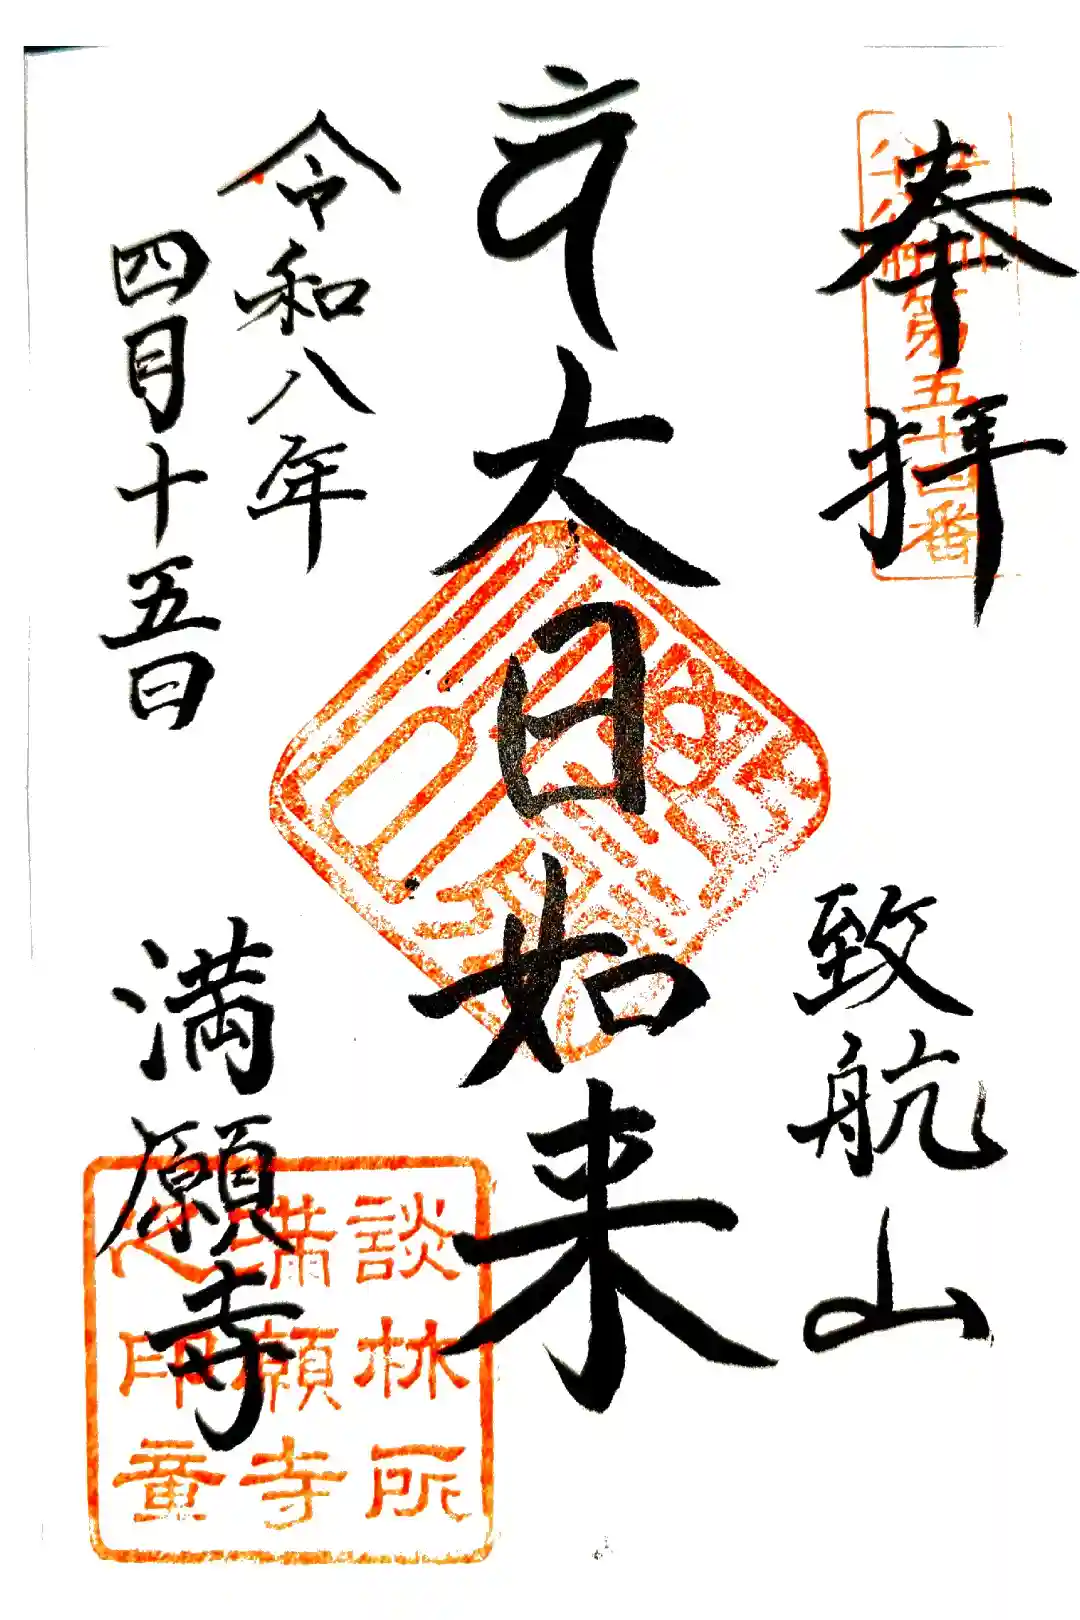 奉拝
第五十四番
致航山
大日如来
令和八年
四月十五日
満願寺
談林所
満願寺
印章